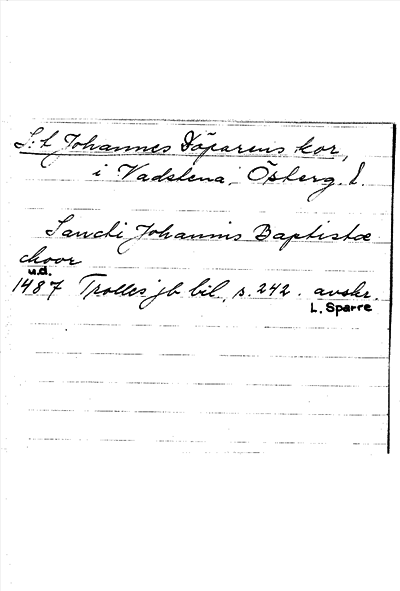 S:t Johannes Döparens kor,
i Vadstena, Östergl.
Sancti Johannis Baptistæ
choor
u.d.
1487 Trolles jb bil. s. 242. avskr.
L. Sparre